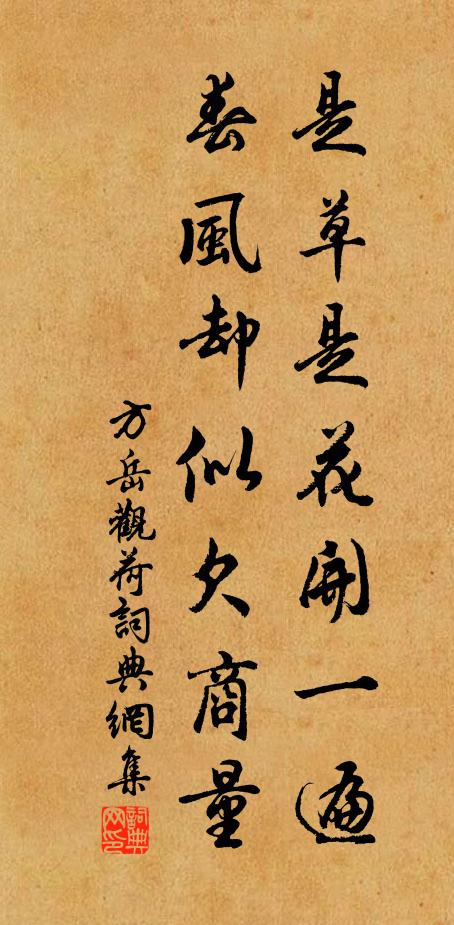 是草是花開一遍
春風却似欠商量
方岳觀荷詞典網集
詞典
网印